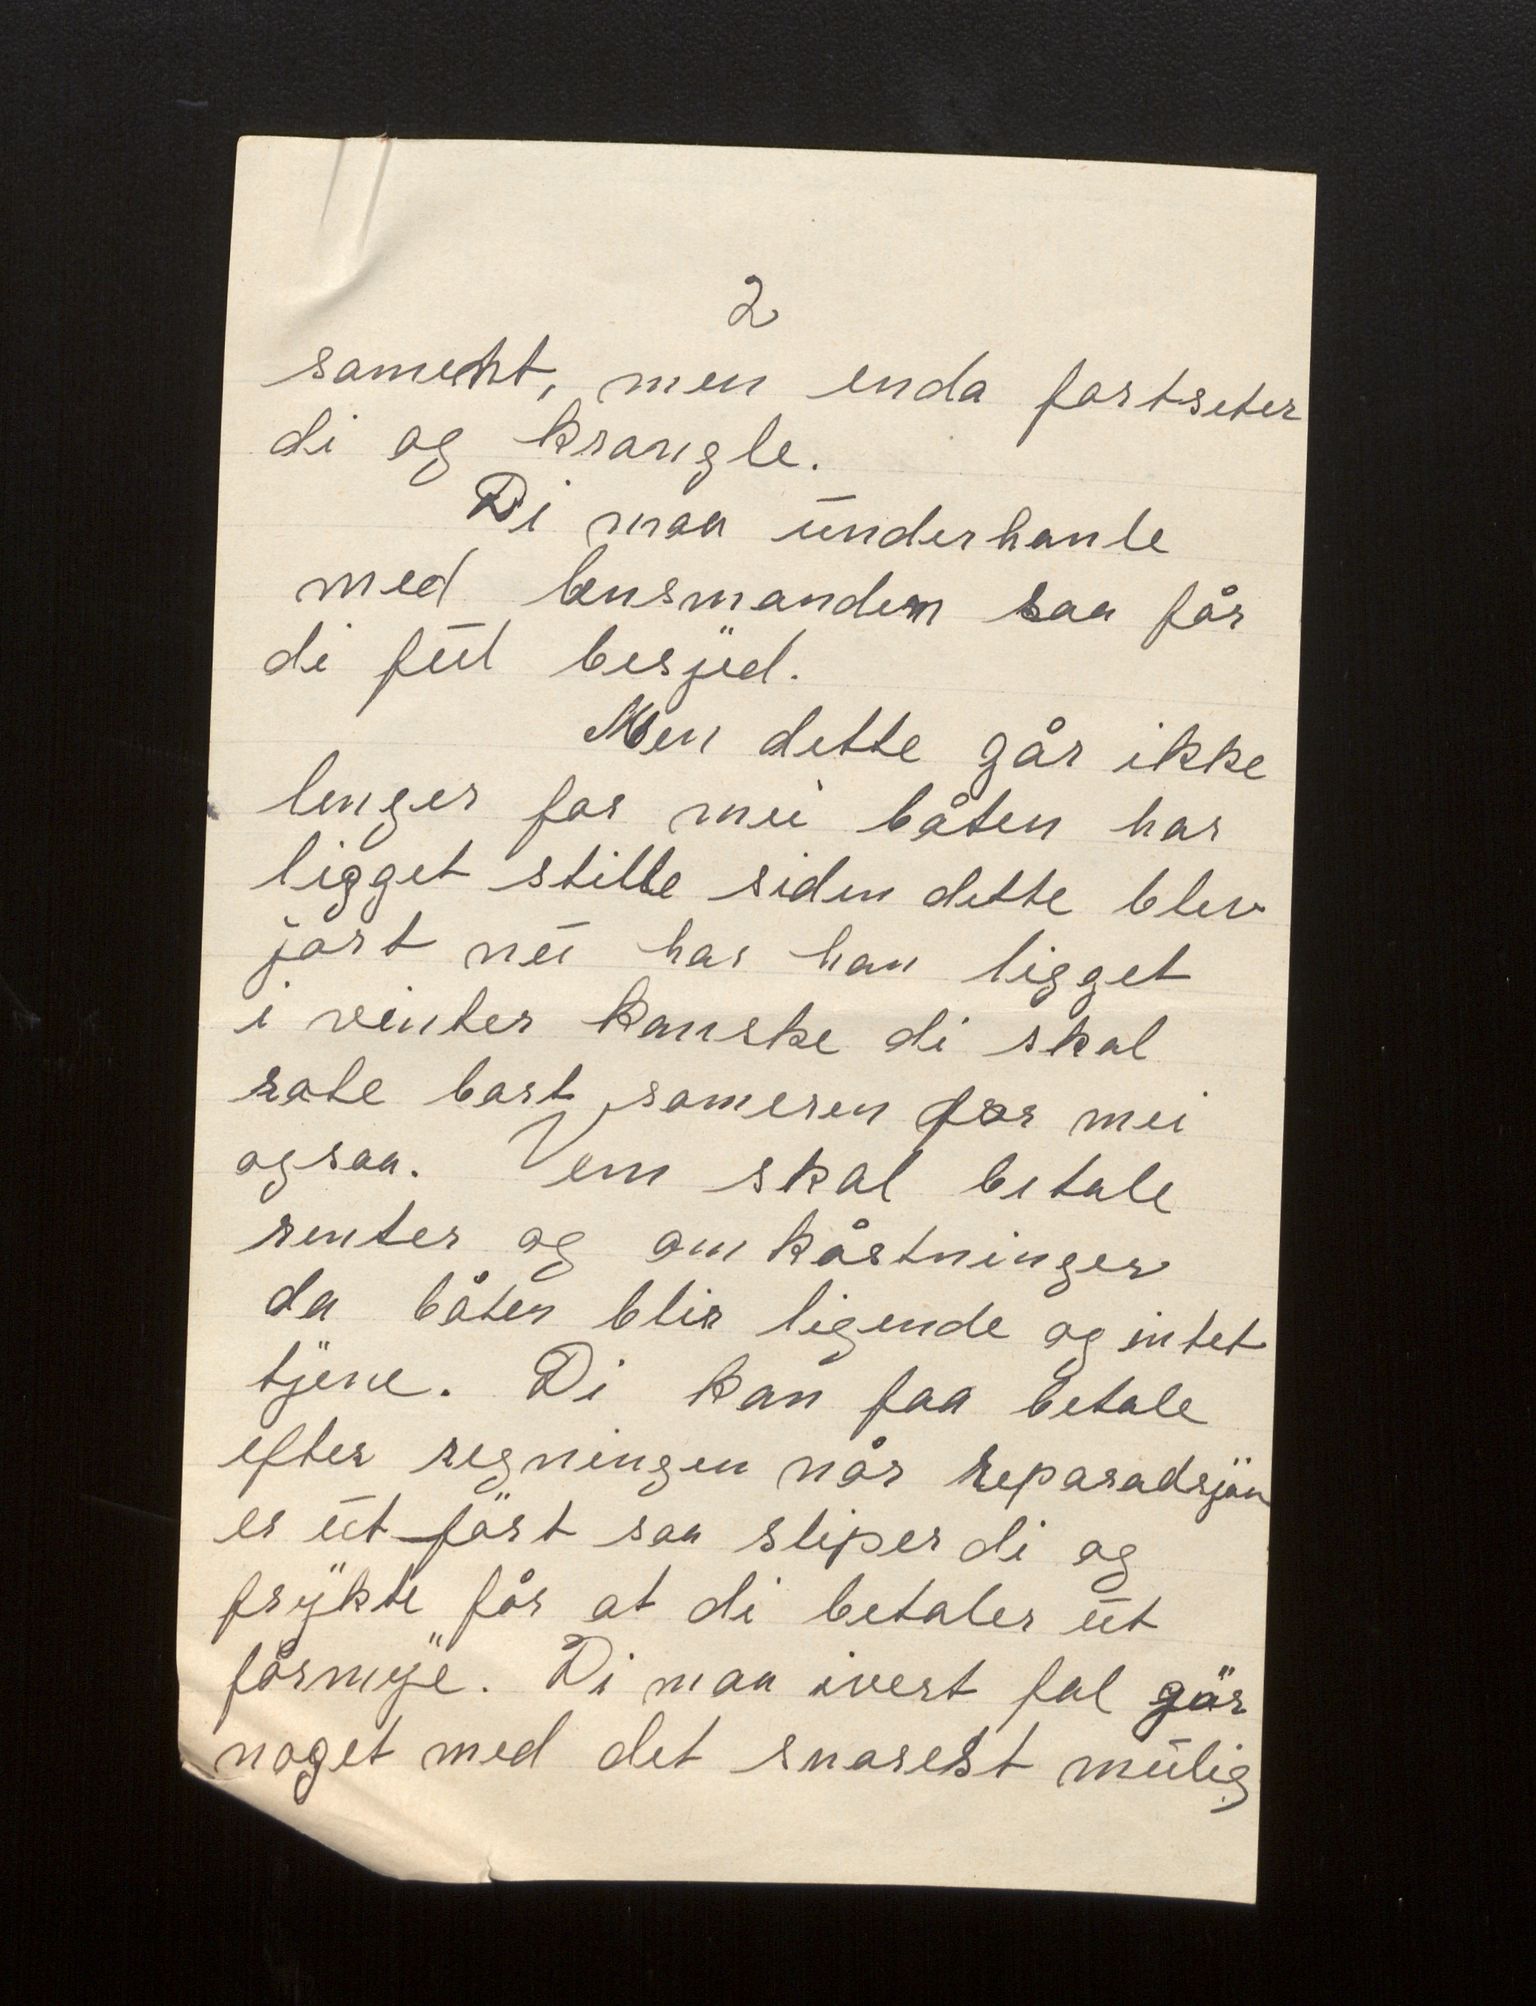 2
samernt, men enda fortseter
di og krangle.
Di maa underhanle
med lensmanden saa får
di ful besjed.
Men dette går ikke
lenger for mei båten har
ligget stille siden dette blev
jårt nu har han ligget
i vinter kanske di skal
rote bort someren for mei
ogsaa. Vem skal betale
renter og omkåstninger
da båten blir ligende og intet
tjene. Di kan faa betale
efter regningen når reparadsjön
er ut fört saa sliper di og
frykte får at di betaler ut
fårmye. Di maa ivert fal gör
noget med det snarest mulig